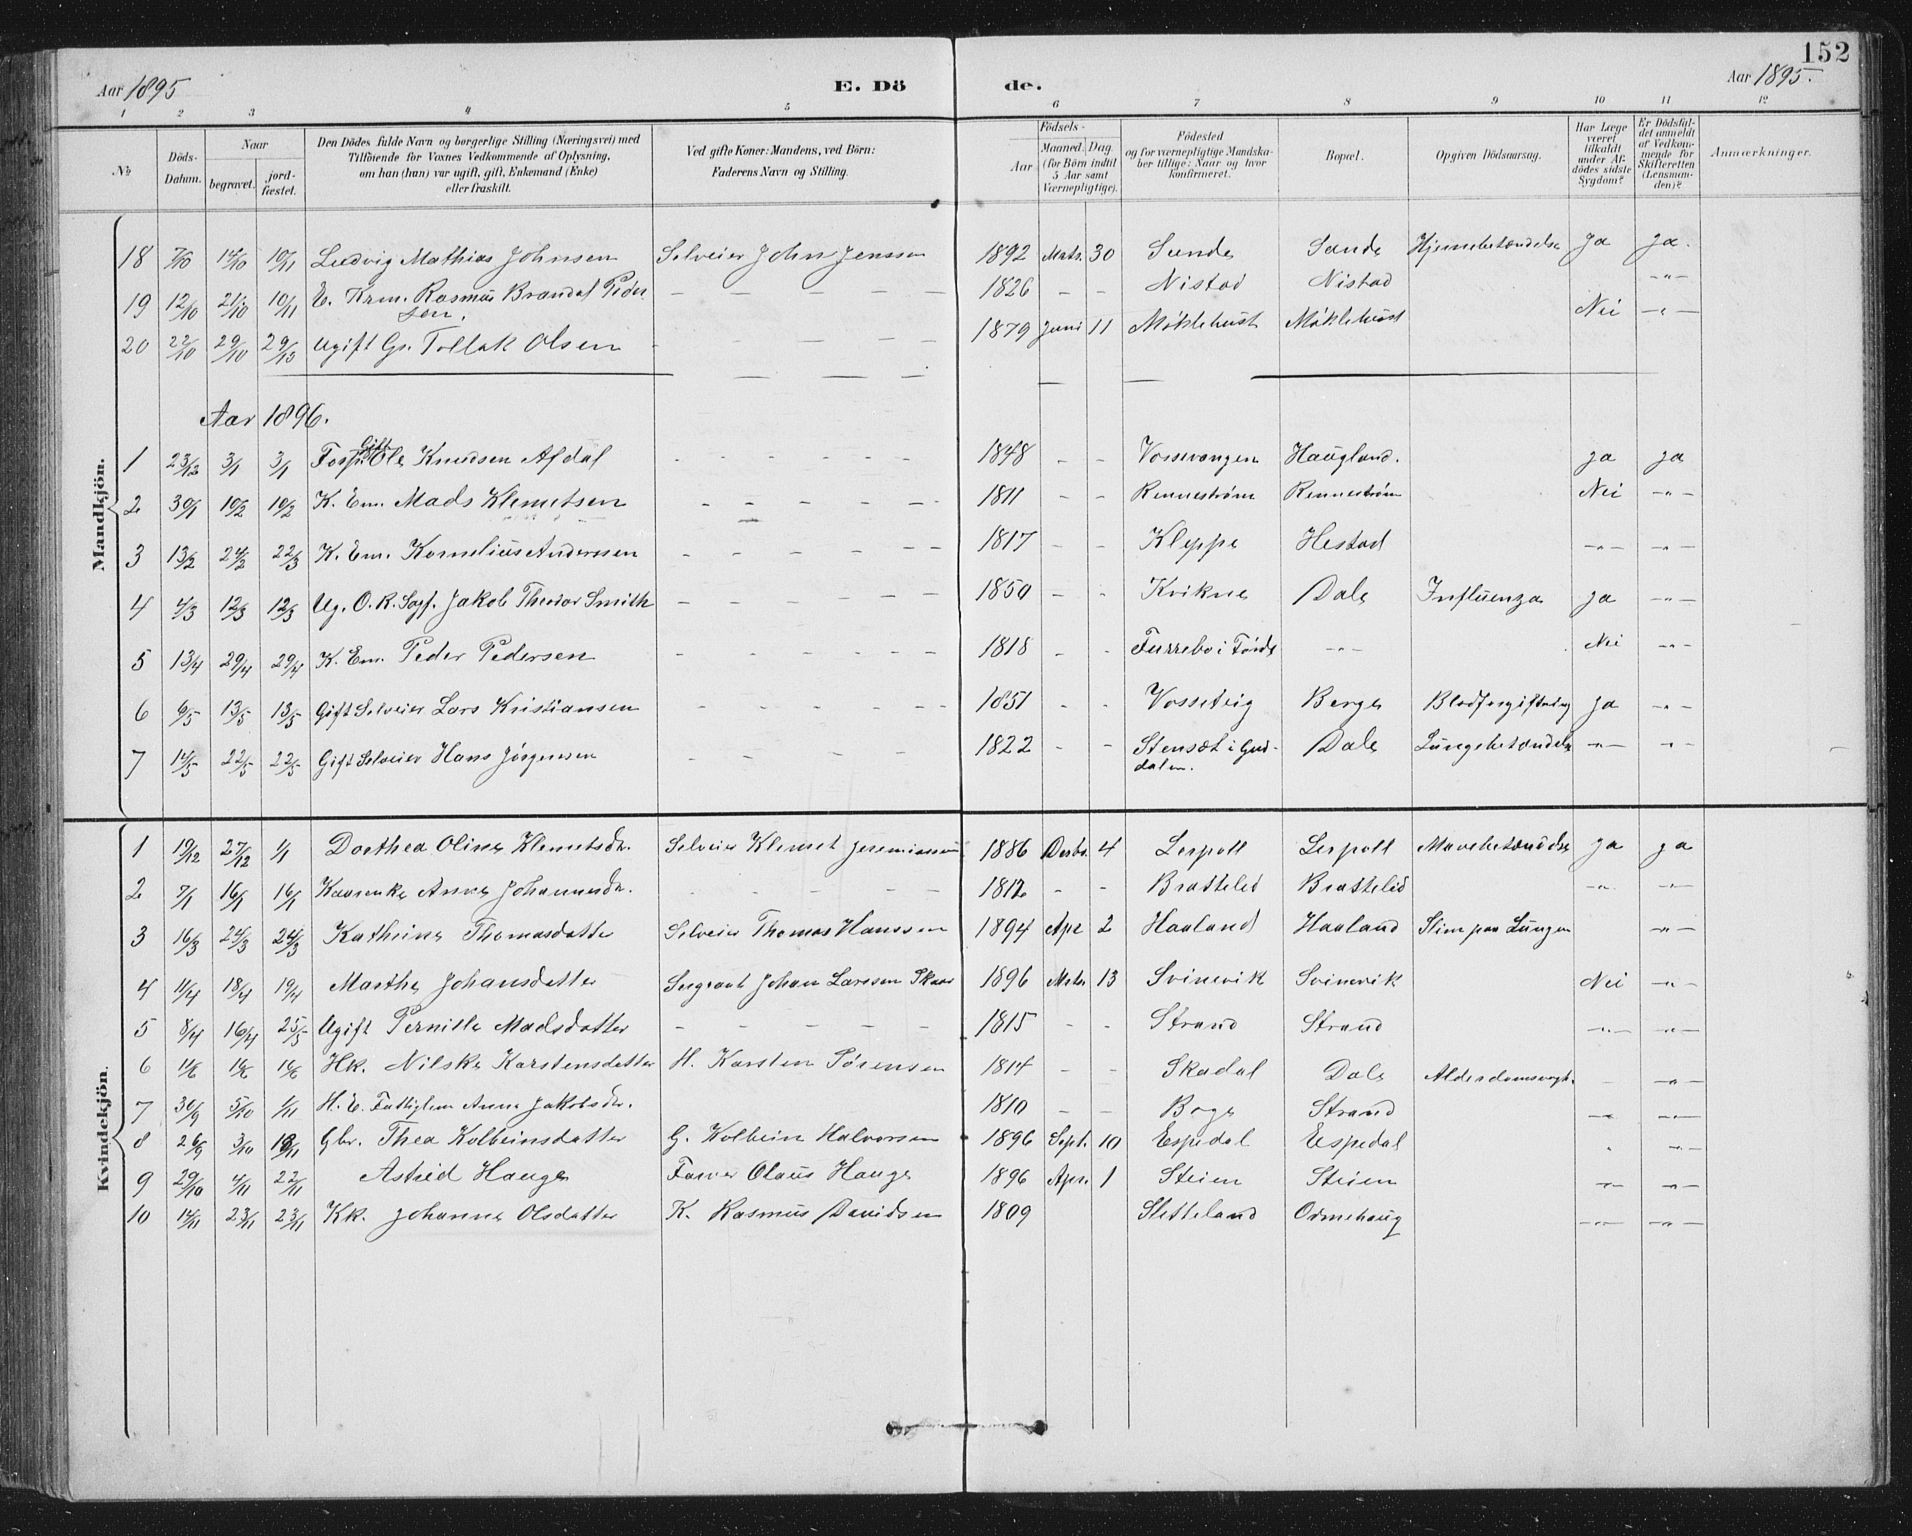 152
Aar 1895 E. Dö de. Aar 1895.
1 2 3 4 5 6 7 8 9 10 11 12
No Döds-Datum. Naar begravet. jord-fæstet. Den Dödes fulde Navn og borgerlige Stilling (Næringsvei) med Tilföiende for Voxnes Vedkommende af Oplysning, om han (hun) var ugift, gift, Enkemand (Enke) eller fraskilt. Ved gifte Koner: Mandens, ved Börn: Faderens Navn og Stilling. Födsels- Aar Maaned. Dag. (for Börn indtil 5 Aar samt Værnepligtige). Födested og for værnepligtige Mandska-ber tillige: Naar og hvor konfirmeret. Bopæl. Opgiven Dödsaarsag. Har Læge været tilkaldt under Af-dödes sidste Sygdom? Er Dödsfal-det anmeldt af Vedkom-mende for Skifteretten (Lensman-den)? Anmærkninger.
Mandkjön.
18 7/10 14/10 10/11 Ludvig Mathias Johnsen Selveier John Jenssen 1892 Mats. 30 Sande Sande Hjernebetændelse Ja Ja.
19 12/10 21/10 10/11 E. Krm. Rasmus Brandal Peder sen. — — — — — 1826 – – Nistad Nistad —"—
20 22/10 29/10 29/10 Ugift Gs. Tollak Olsen 1879 Juni 11 Møklebust Møklebust Nei —"—
Aar 1896.
1 23/12 3/1 3/1 Gift Ole Knudsen Afdal 1848 – – Vossevangen Haugland. Ja Ja
2 30/1 10/2 10/2 K. Em. Mads Klemetsen 1811 – – Rennestrøm Rennestrøm Nei —"—
3 13/2 24/2 22/3 K. Em. Kornelius Anderssen 1817 – – Kleppe Hestad —"— —"—
4 4/3 12/3 12/3 Ug. O. R. Sagf. Jakob Theodor Smith 1850 – – Kvikne Dale Influenza Ja —"—
5 13/4 29/4 29/4 K. Em. Peder Pedersen 1818 – – Furrebø i Førde —"— Nei —"—
6 6/5 13/5 13/5 Gift Selveier Lars Kristiansen 1851 – – Vosseteig Berge Blodforgiftning Ja —"—
7 14/5 22/5 22/5 Gift Selveier Hans Jørgensen 1822 – – Stensæt i Gud-dalen. Dale Lungebetændelse —"— —"—
Kvindekjön.
1 19/12 27/12 1/1 Dorthea Oline Klemetsdr. Selveier Klemet Jeremiassen 1886 Decbr. 4 Lerpoll Lerpoll Mavebetændelse Ja Ja
2 7/1 16/1 16/1 Kaarenke Anne Johannesdr. 1812 – – Brattelid Brattelid —"— —"—
3 16/3 24/3 24/3 Kathrine Thomasdatter Selveier Thomas Hanssen 1894 Apr 2 Haaland Haaland Slim paa Lungen —"—
4 11/4 18/4 19/4 Marthe Johansdatter Sergeant Johan Larssen Skaar 1896 Mrts. 13 Svinevik Svinevik Nei —"—
5 8/4 16/4 25/5 Ugift Pernille Madsdatter 1815 – – Strand Strand —"— —"—
6 14/6 Hk. Nilske Karstensdatter H. Karsten Sørensen 1814 – – Skadal Dale Alderdomssvagh. —"—
7 30/9 5/10 1/11 H. E. Fattiglem Anne Jakobsdr. 1810 – – Boge Strand —"— —"—
8 26/9 3/10 Gbr. Thea Kolbeinsdatter G. Kolbein Halvorsen 1896 Sept. 10 Espedal Espedal —"—
9 29/10 4/11 22/11 Astrid Hauge Farver Olaus Hauge 1896 Apr. 1 Steien Steien —"— —"—
10 14/11 23/11 23/11 Kk. Johanne Olsdatter K. Rasmus Davidsen 1809 Sletteland Ormehaug —"— —"—